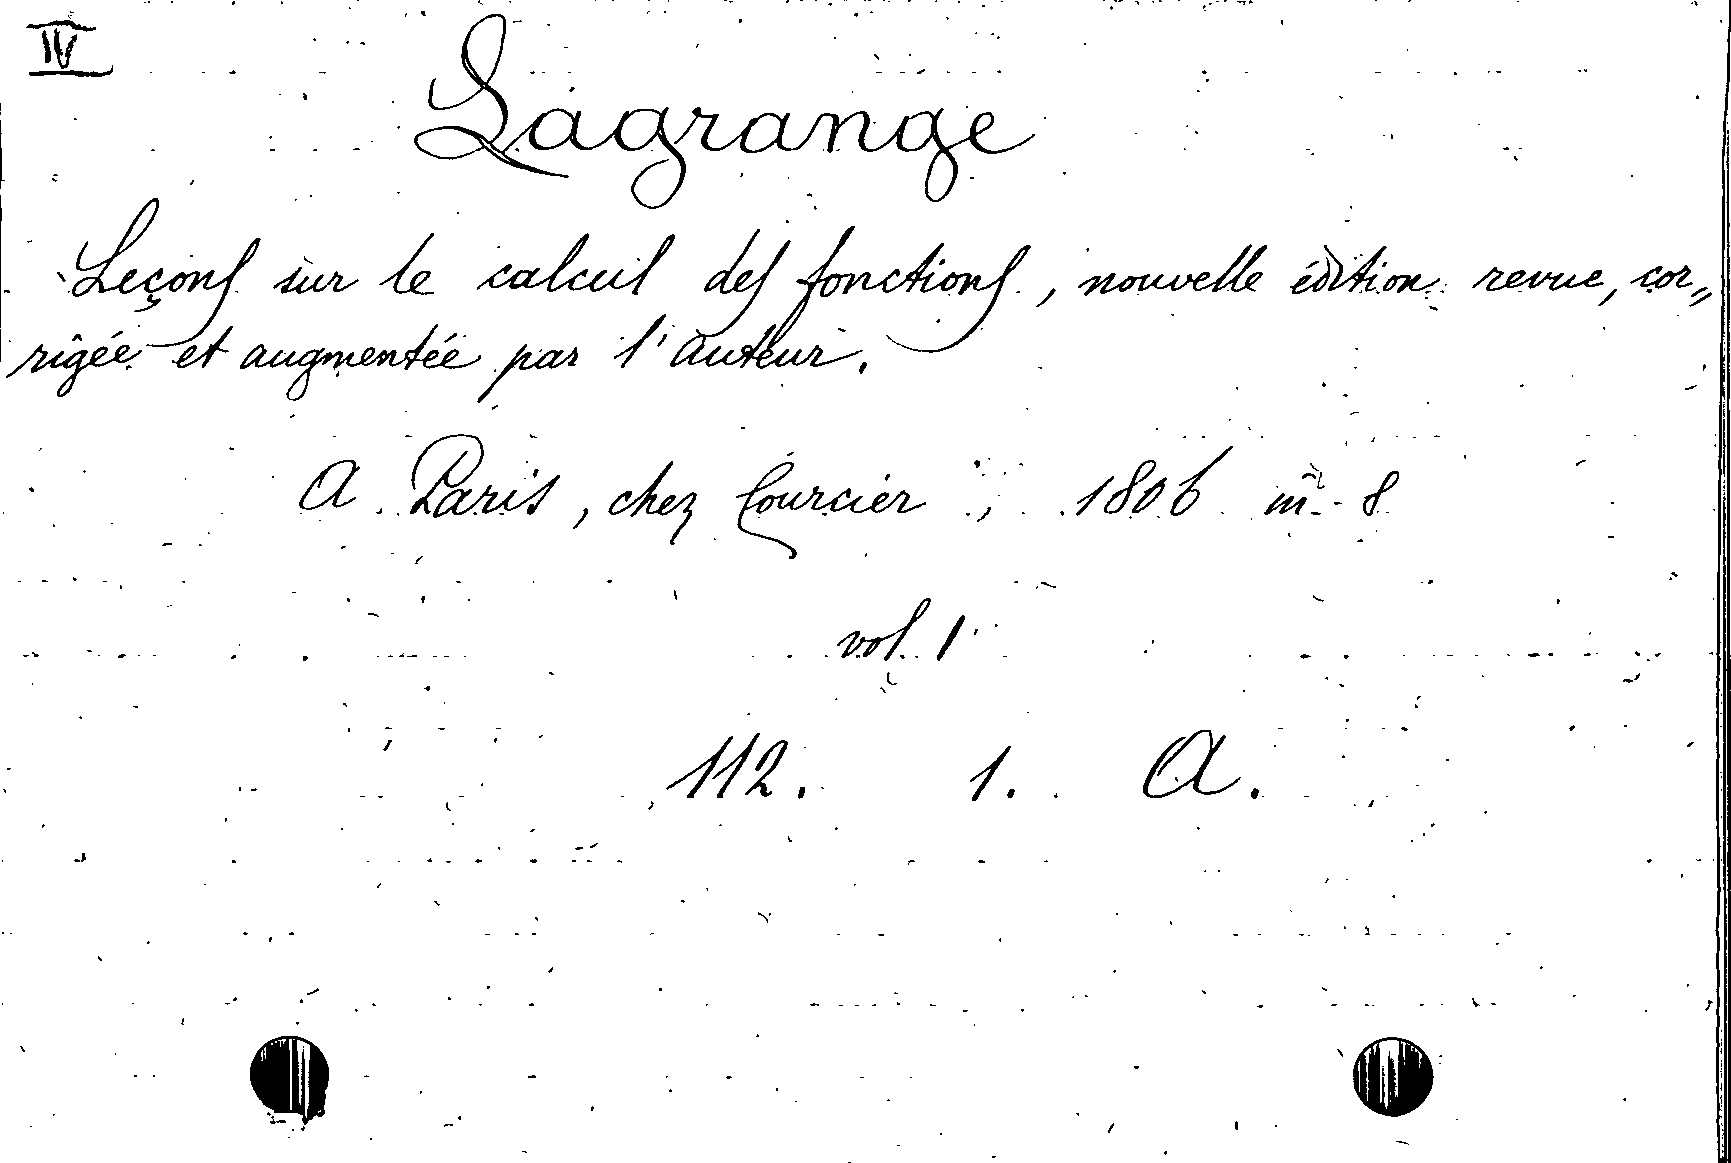 IV
Lagrange
Leçons sur le calcul des fonctions, nouvelle édition revue, cor„
rigée et augmentée par l'auteur.
A Paris, chez Courcier, 1806 in-8
vol. 1
112. 1. A.